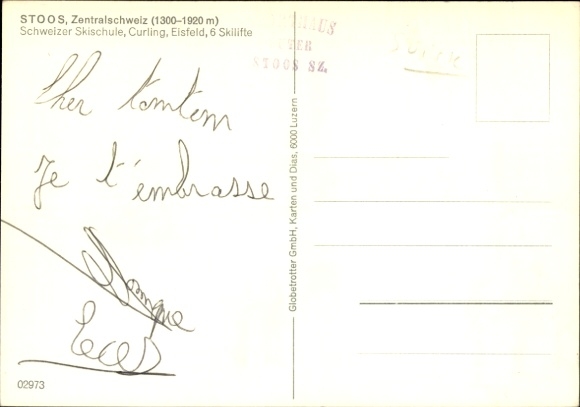 STOOS, Zentralschweiz (1300–1920 m)
Schweizer Skischule, Curling, Eisfeld, 6 Skilifte
STOOS SZ.
Cher tomtom
Je t'embrasse
Globetrotter GmbH, Karten und Dias, 6000 Luzern
02973